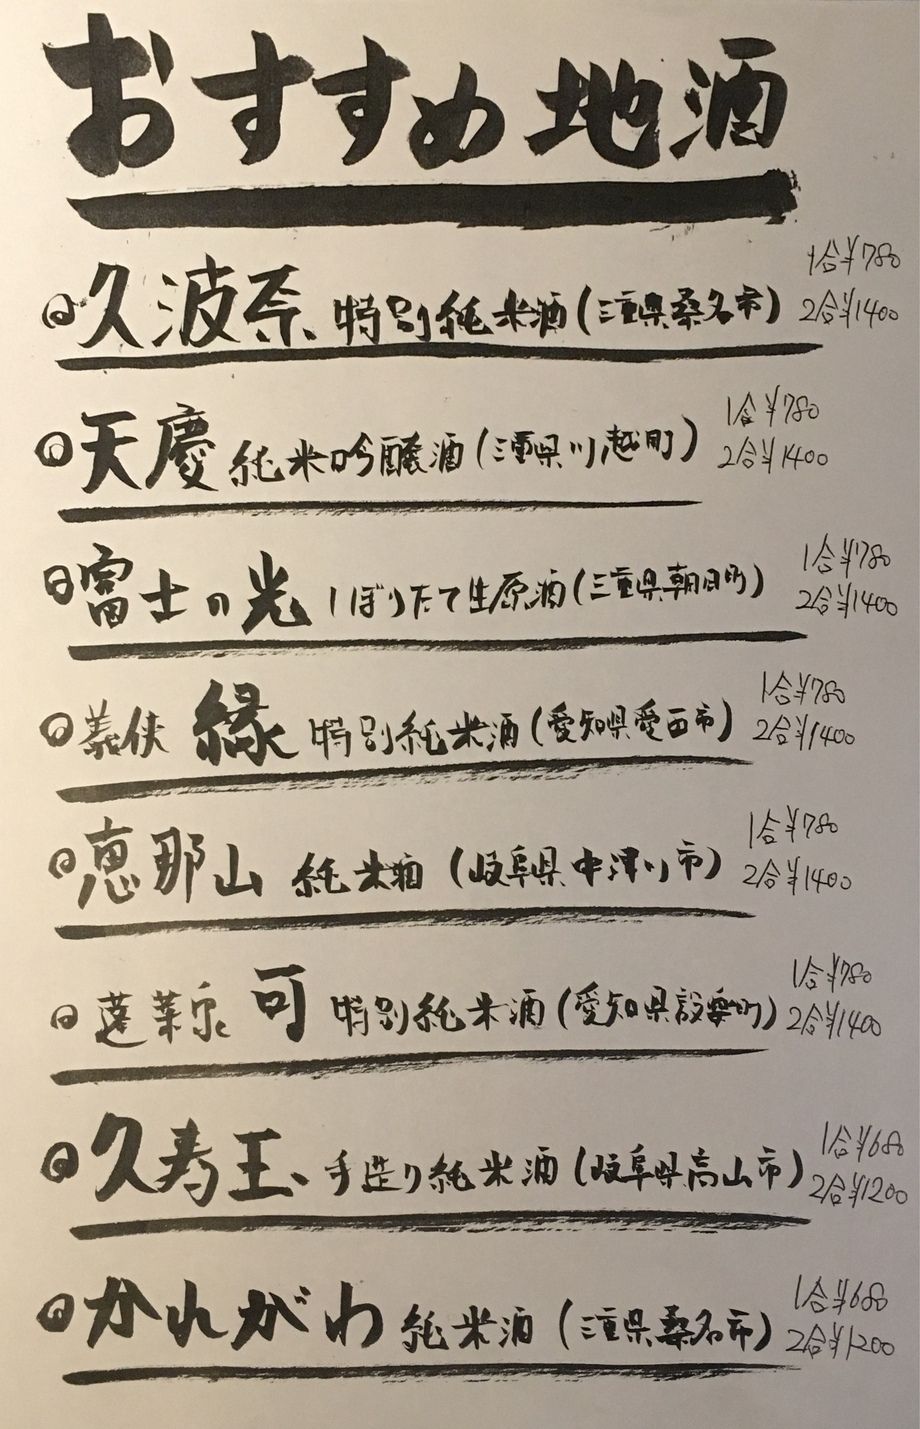 おすすめ地酒
1合¥780
久波奈、特別純米酒(三重県桑名市) 2合¥1400
1合¥780
天慶 純米吟醸酒(三重県川越町) 2合¥1400
1合¥780
富士の光 しぼりたて生原酒(三重県朝日町) 2合¥1400
1合¥780
義侠 縁 特別純米酒(愛知県愛西市) 2合¥1400
1合¥780
恵那山 純米酒(岐阜県中津川市) 2合¥1400
1合¥780
蓬莱泉 可 特別純米酒(愛知県設楽町) 2合¥1400
1合¥680
久寿玉、手造り純米酒(岐阜県高山市) 2合¥1200
1合¥680
かれがわ 純米酒(三重県桑名市) 2合¥1200